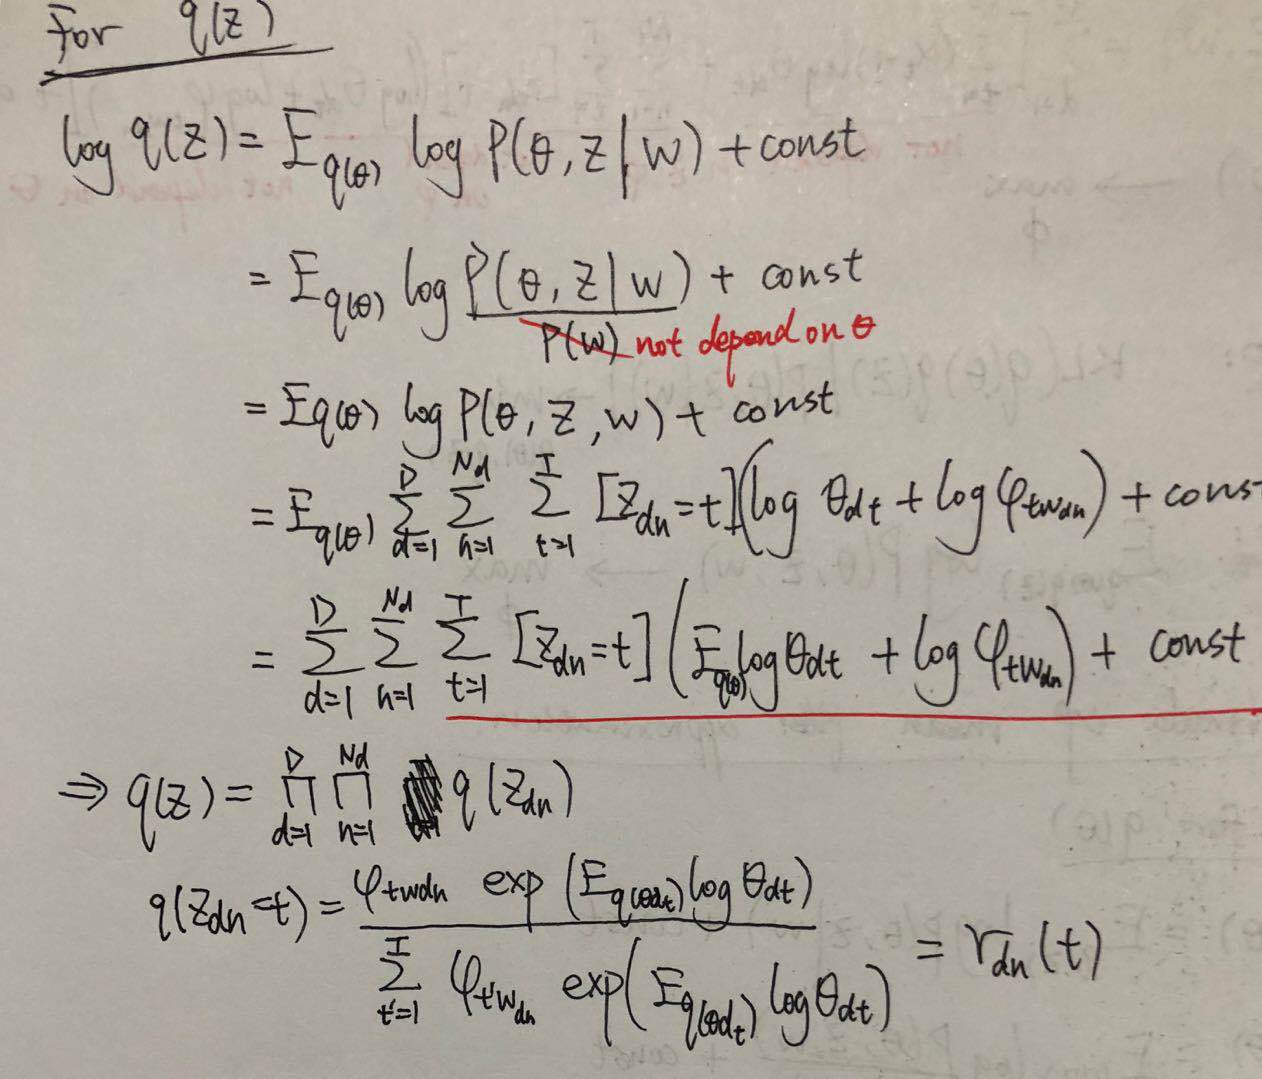 For q(z)
log q(z) = E_{q(θ)} log P(θ, z | w) + const
= E_{q(θ)} log P(θ, z | w) / P(w) + const
not depend on θ
= E_{q(θ)} log P(θ, z, w) + const
= E_{q(θ)} Σ_{d=1}^{D} Σ_{n=1}^{Nd} Σ_{t=1}^{T} [z_{dn} = t] (log θ_{dt} + log φ_{tw_{dn}}) + cons
= Σ_{d=1}^{D} Σ_{n=1}^{Nd} Σ_{t=1}^{T} [z_{dn} = t] (E_{q(θ)} log θ_{dt} + log φ_{tw_{dn}}) + const
⇒ q(z) = Π_{d=1}^{D} Π_{n=1}^{Nd} q(z_{dn})
q(z_{dn} = t) = φ_{tw_{dn}} exp (E_{q(θ_{dt})} log θ_{dt}) / Σ_{t'=1}^{T} φ_{t'w_{dn}} exp (E_{q(θ_{dt})} log θ_{dt}) = γ_{dn}(t)